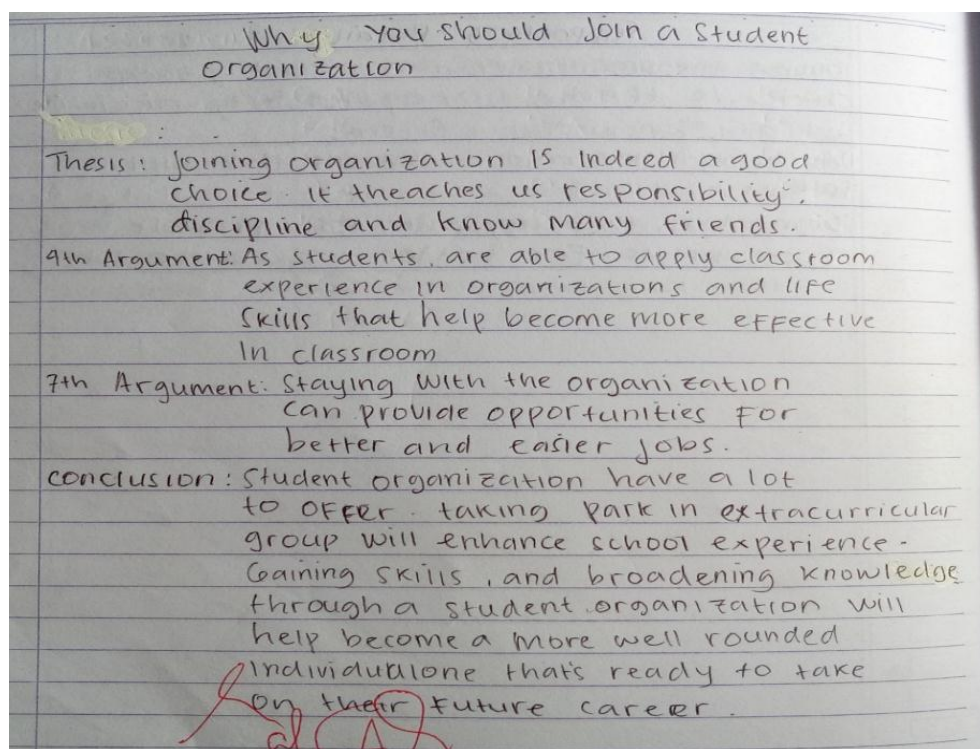 Why You should Join a Student
Organization
Thesis: Joining organization is indeed a good
choice. it theaches us responsibility,
discipline and know many friends.
4th Argument: As students, are able to apply classroom
experience in organizations and life
skills that help become more effective
in classroom
7th Argument: Staying with the organization
can provide opportunities for
better and easier jobs.
conclusion: Student organization have a lot
to offer. taking park in extracurricular
group will enhance school experience.
Gaining skills, and broadening knowledge
through a student organization will
help become a more well rounded
individualone that's ready to take
on their future career.